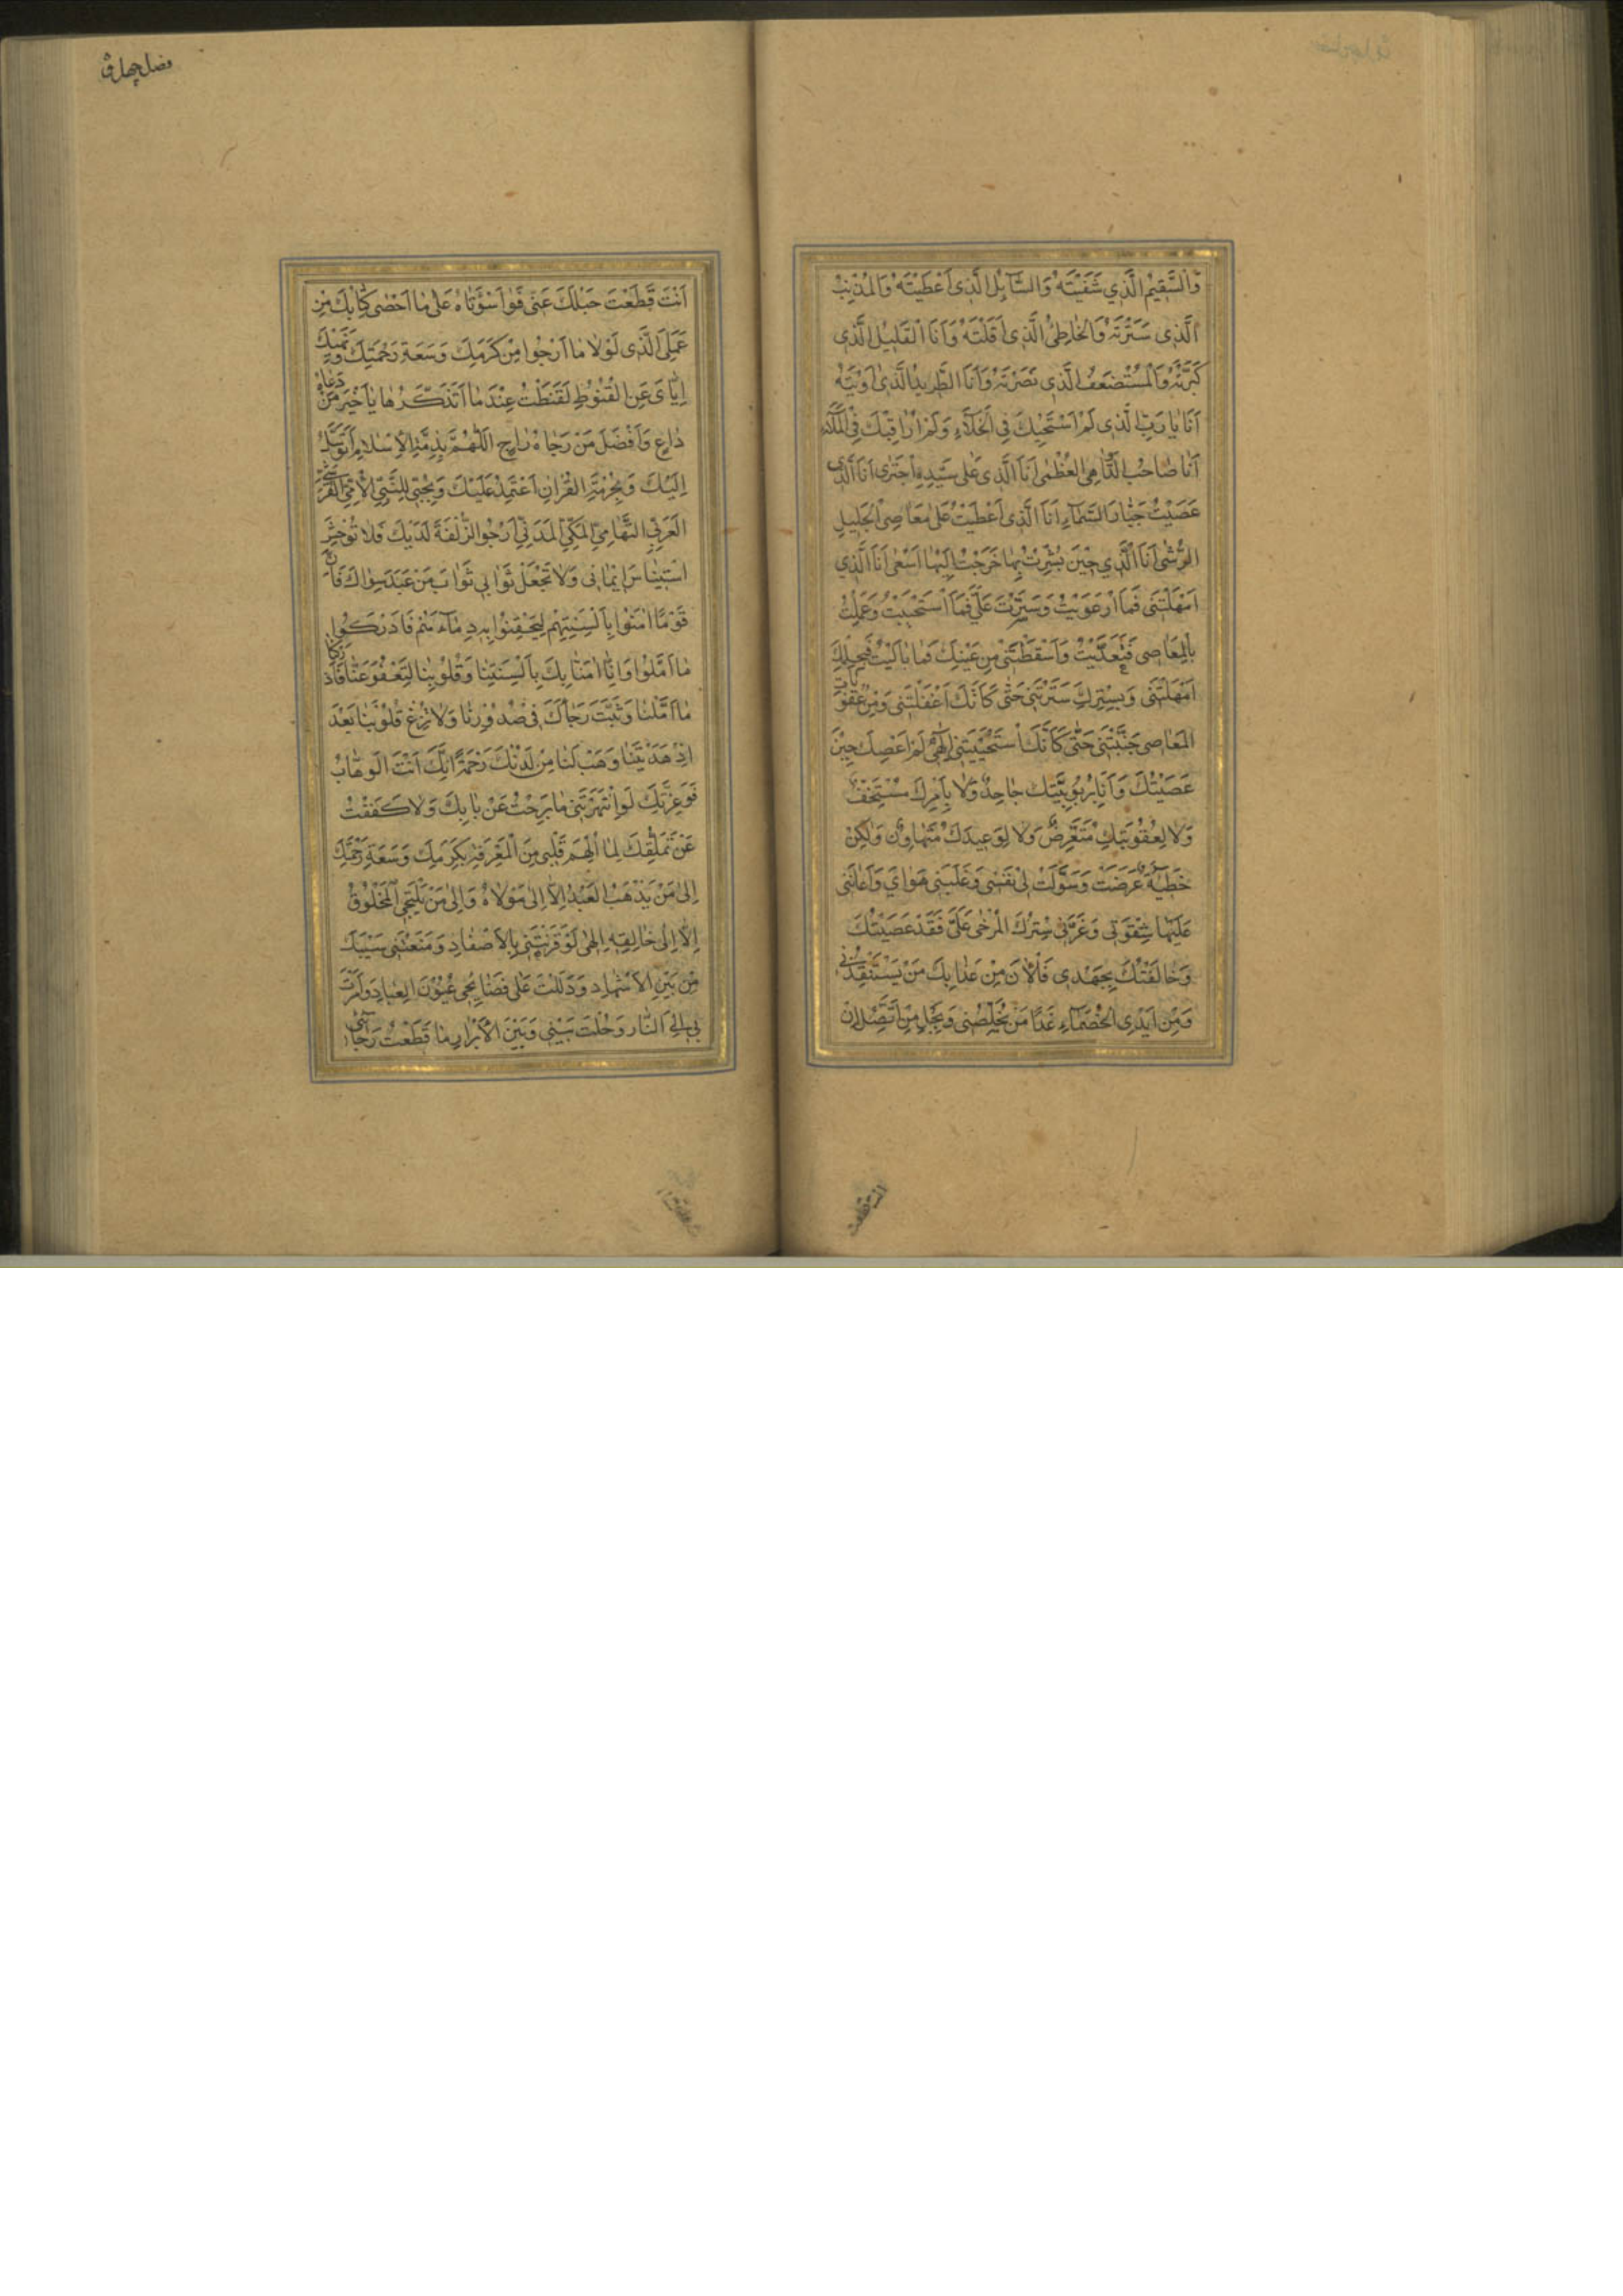 وَالسَّقِيمُ الَّذِي شَفَيْتَهُ وَالسَّآئِلُ الَّذِی اَعْطَيْتَهُ وَالْمُذْنِبُ
الَّذِی سَتَرْتَهُ وَالْخَاطِئُ الَّذِی اَقَلْتَهُ وَاَنَا الْقَلِيلُ الَّذِی
كَثَّرْتَهُ وَالْمُسْتَضْعَفُ الَّذِی نَصَرْتَهُ وَاَنَا الطَّرِيدُ الَّذِی اٰوَيْتَهُ
اَنَا يَا رَبِّ الَّذِی لَمْ اَسْتَحْيِكَ فِی الْخَلَآءِ وَلَمْ اُرَاقِبْكَ فِی الْمَلَآءِ
اَنَا صَاحِبُ الدَّوَاهِی الْعُظْمٰی اَنَا الَّذِی عَلٰی سَيِّدِهِ اجْتَرٰی اَنَا الَّذِی
عَصَيْتُ جَبَّارَ السَّمَآءِ اَنَا الَّذِی اَعْطَيْتُ عَلٰی مَعَاصِی الْجَلِيلِ
الرُّشٰی اَنَا الَّذِي حِيْنَ بُشِّرْتُ بِهَا خَرَجْتُ اِلَيْهَا اَسْعٰی اَنَا الَّذِي
اَمْهَلْتَنِی فَمَا ارْعَوَيْتُ وَسَتَرْتَ عَلَيَّ فَمَا اسْتَحْيَيْتُ وَعَمِلْتُ
بِالْمَعَاصِی فَتَعَدَّيْتُ وَاَسْقَطْتَنِی مِنْ عَيْنِكَ فَمَا بَالَيْتُ فَبِحِلْمِكَ
اَمْهَلْتَنِی وَبِسِتْرِكَ سَتَرْتَنِی حَتّٰی كَاَنَّكَ اَغْفَلْتَنِی وَمِنْ عُقُوبَاتِ
الْمَعَاصِی جَنَّبْتَنِی حَتّٰی كَاَنَّكَ اسْتَحْيَيْتَنِی اِلٰهِی لَمْ اَعْصِكَ حِيْنَ
عَصَيْتُكَ وَاَنَا بِرُبُوبِيَّتِكَ جَاحِدٌ وَلَا بِاَمْرِكَ مُسْتَخِفٌّ
وَلَا لِعُقُوبَتِكَ مُتَعَرِّضٌ وَلَا لِوَعِيدِكَ مُتَهَاوِنٌ وَلٰكِنْ
خَطِيْئَةٌ عَرَضَتْ وَسَوَّلَتْ لِی نَفْسِی وَغَلَبَنِی هَوَايَ وَاَعَانَنِی
عَلَيْهَا شِقْوَتِی وَغَرَّنِی سِتْرُكَ الْمُرْخٰی عَلَيَّ فَقَدْ عَصَيْتُكَ
وَخَالَفْتُكَ بِجَهْدِی فَالْاٰنَ مِنْ عَذَابِكَ مَنْ يَسْتَنْقِذُنِی
وَمِنْ اَيْدِی الْخُصَمَآءِ غَدًا مَنْ يُخَلِّصُنِی وَبِحَبْلِ مَنْ اَتَّصِلُ اِنْ
انت قطعت
فضل چهارم
اَنْتَ قَطَعْتَ حَبْلَكَ عَنِّی فَوَا سَوْاَتَاهُ عَلٰی مَا اَحْصٰی كِتَابُكَ مِنْ
عَمَلِیَ الَّذِی لَوْلَا مَا اَرْجُوا مِنْ كَرَمِكَ وَسَعَةِ رَحْمَتِكَ وَنَهْيِكَ
اِيَّایَ عَنِ الْقُنُوطِ لَقَنَطْتُ عِنْدَمَا اَتَذَكَّرُهَا يَا خَيْرَ مَنْ دَعَاهُ
دَاعٍ وَاَفْضَلَ مَنْ رَجَاهُ رَاجٍ اَللّٰهُمَّ بِذِمَّةِ الْاِسْلَامِ اَتَوَسَّلُ
اِلَيْكَ وَبِحُرْمَةِ الْقُرْاٰنِ اَعْتَمِدُ عَلَيْكَ وَبِحُبِّی لِلنَّبِیِّ الْاُمِّیِّ الْقُرَشِیِّ
الْعَرَبِیِّ التِّهَامِیِّ الْمَكِّیِّ الْمَدَنِیِّ اَرْجُوا الزُّلْفَةَ لَدَيْكَ فَلَا تُوْحِشِ
اسْتِيْنَاسَ اِيْمَانِی وَلَا تَجْعَلْ ثَوَابِی ثَوَابَ مَنْ عَبَدَ سِوَاكَ فَاِنَّ
قَوْمًا اٰمَنُوا بِاَلْسِنَتِهِمْ لِيَحْقِنُوا بِهِ دِمَآءَهُمْ فَاَدْرَكُوا
مَا اَمَّلُوا وَاِنَّا اٰمَنَّا بِكَ بِاَلْسِنَتِنَا وَقُلُوبِنَا لِتَعْفُوَ عَنَّا فَاَدْرِكْنَا
مَا اَمَّلْنَا وَثَبِّتْ رَجَاكَ فِی صُدُورِنَا وَلَا تُزِغْ قُلُوبَنَا بَعْدَ
اِذْ هَدَيْتَنَا وَهَبْ لَنَا مِنْ لَدُنْكَ رَحْمَةً اِنَّكَ اَنْتَ الْوَهَّابُ
فَوَعِزَّتِكَ لَوِ انْتَهَرْتَنِی مَا بَرِحْتُ عَنْ بَابِكَ وَلَا كَفَفْتُ
عَنْ تَمَلُّقِكَ لِمَا اُلْهِمَ قَلْبِی مِنَ الْمَعْرِفَةِ بِكَرَمِكَ وَسَعَةِ رَحْمَتِكَ
اِلٰی مَنْ يَذْهَبُ الْعَبْدُ اِلَّا اِلٰی مَوْلَاهُ وَاِلٰی مَنْ يَلْتَجِی الْمَخْلُوقُ
اِلَّا اِلٰی خَالِقِهِ اِلٰهِی لَوْ قَرَنْتَنِی بِالْاَصْفَادِ وَمَنَعْتَنِی سَيْبَكَ
مِنْ بَيْنِ الْاَشْهَادِ وَدَلَلْتَ عَلٰی فَضَايِحِی عُيُوْنَ الْعِبَادِ وَاَمَرْتَ
بِی اِلَی النَّارِ وَحُلْتَ بَيْنِی وَبَيْنَ الْاَبْرَارِ مَا قَطَعْتُ رَجَائِی